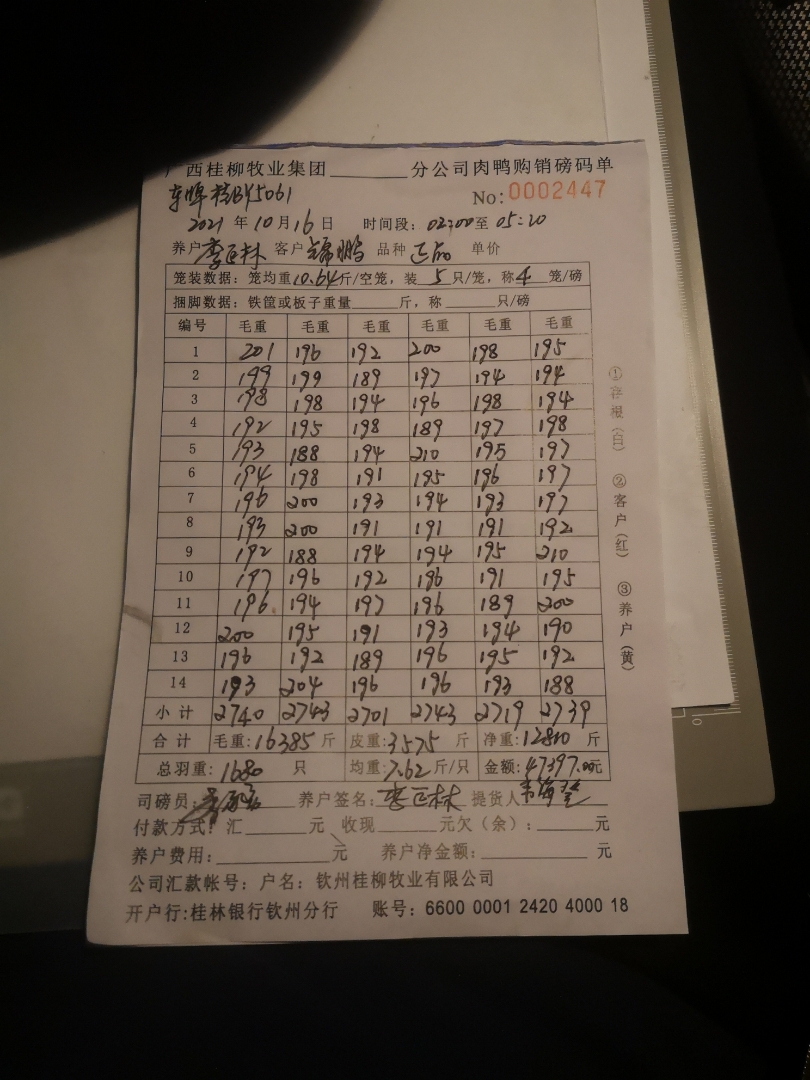 广西桂柳牧业集团________分公司肉鸭购销磅码单
车牌桂BY5061 No:0002447
2021年10月16日 时间段:02:00至05:20
养户李巨林 客户锦鹏 品种 正品 单价
笼装数据:笼均重10.64斤/空笼,装5只/笼,称4笼/磅
捆脚数据:铁筐或板子重量_____斤,称_____只/磅
编号 毛重 毛重 毛重 毛重 毛重 毛重
1 201 196 192 200 198 195
2 199 199 189 197 194 194
3 198 198 194 196 198 194
4 192 195 198 189 197 198
5 193 188 194 210 195 197
6 194 198 191 195 196 197
7 196 200 193 194 193 197
8 193 200 191 191 191 192
9 192 188 194 194 195 210
10 197 196 192 196 191 195
11 196 194 197 196 189 200
12 200 195 191 193 194 190
13 196 192 189 196 195 192
14 193 204 196 196 193 188
小计 2740 2743 2701 2743 2719 2739
合计 毛重:16385斤 皮重:3575斤 净重:12810斤
总羽重:1680只 均重:7.62斤/只 金额:47397.00元
司磅员: 养户签名:李巨林 提货人韦海
付款方式:汇______元 收现______元欠(余):_____元
养户费用:__________元 养户净金额:__________元
公司汇款帐号:户名:钦州桂柳牧业有限公司
开户行:桂林银行钦州分行 账号:6600 0001 2420 4000 18
①存根(白) ②客户(红) ③养户(黄)